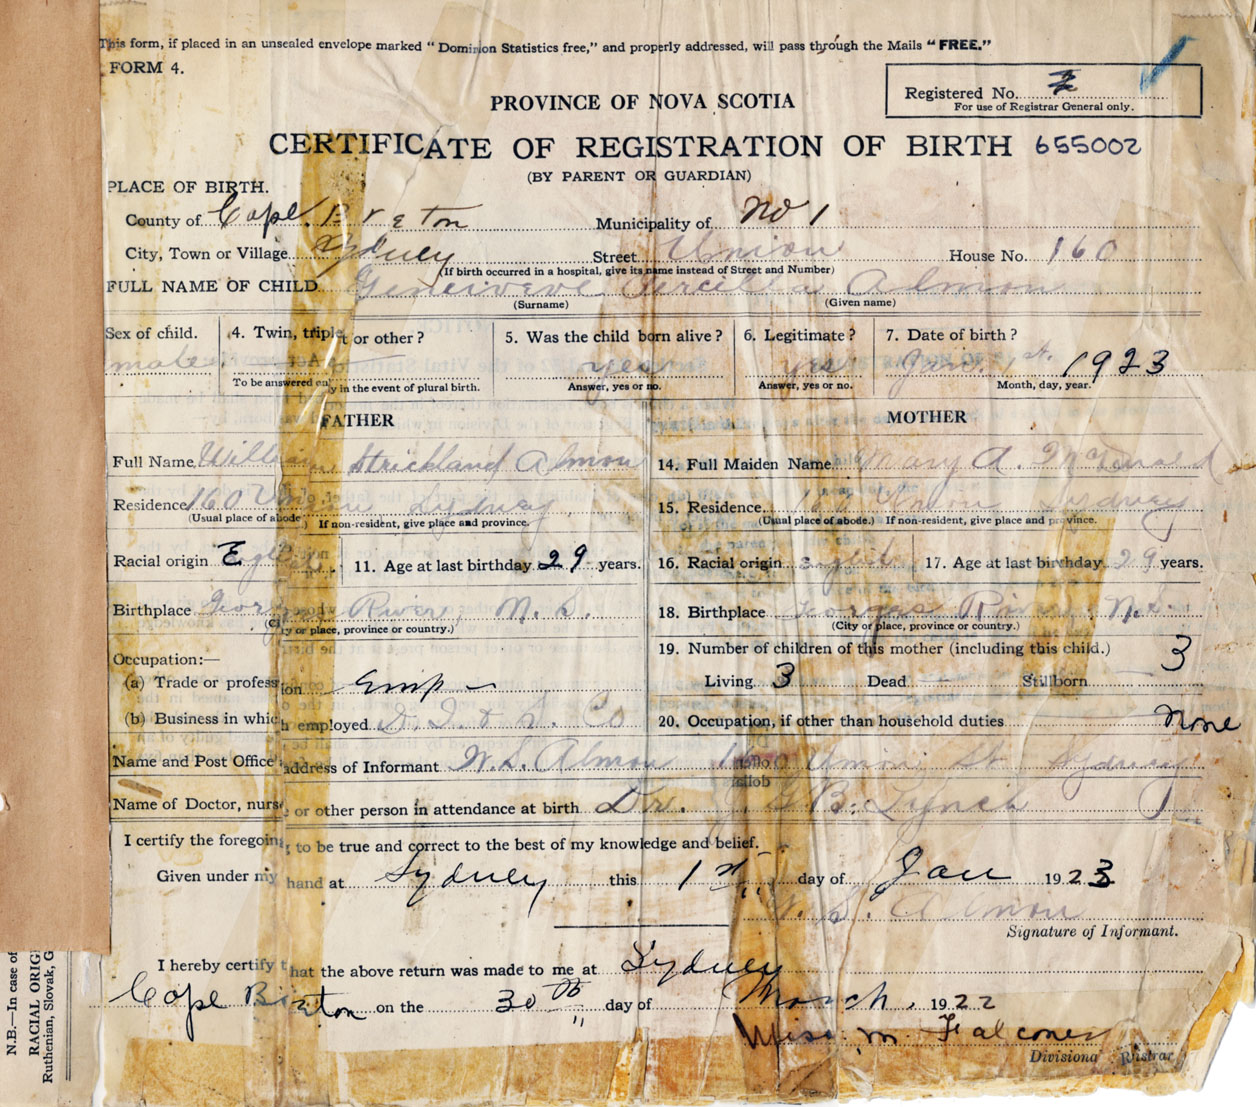 This form, if placed in an unsealed envelope marked “Dominion Statistics free,” and properly addressed, will pass through the Mails “FREE.”
FORM 4.
Registered No.
For use of Registrar General only.
PROVINCE OF NOVA SCOTIA
CERTIFICATE OF REGISTRATION OF BIRTH 655002
(BY PARENT OR GUARDIAN)
PLACE OF BIRTH.
County of Cape Breton Municipality of No 1
City, Town or Village Sydney Street Union House No. 160
(If birth occurred in a hospital, give its name instead of Street and Number)
FULL NAME OF CHILD Genevieve Percilla Almon
(Surname) (Given name)
Sex of child. 4. Twin, triplet or other? 5. Was the child born alive? 6. Legitimate? 7. Date of birth?
male. yes yes Jan. 1st. 1923
To be answered only in the event of plural birth. Answer, yes or no. Answer, yes or no. Month, day, year.
FATHER MOTHER
Full Name William Strickland Almon 14. Full Maiden Name Mary A.
Residence 160 Union Sydney 15. Residence. 160 Union Sydney
(Usual place of abode) If non-resident, give place and province. (Usual place of abode.) If non-resident, give place and province.
Racial origin English 11. Age at last birthday 29 years. 16. Racial origin English 17. Age at last birthday 29 years.
Birthplace Georges River, N.S. 18. Birthplace Georges River N.S.
(City or place, province or country.) (City or place, province or country.)
19. Number of children of this mother (including this child.) 3
Occupation:—
(a) Trade or profession Emp Living 3 Dead Stillborn
(b) Business in which employed D. I. & S. Co 20. Occupation, if other than household duties none
Name and Post Office address of Informant W. S. Almon 160 Union St. Sydney
Name of Doctor, nurse or other person in attendance at birth Dr. J. G. B. Lynch
I certify the foregoing to be true and correct to the best of my knowledge and belief.
Given under my hand at Sydney this 1st day of Jan 1923
W. S. Almon
Signature of Informant.
I hereby certify that the above return was made to me at Sydney
Cape Breton on the 30th day of March, 1922
Miss M. Falconer
Divisional Registrar
N.B.—In case of
RACIAL ORIG
Ruthenian, Slovak, G